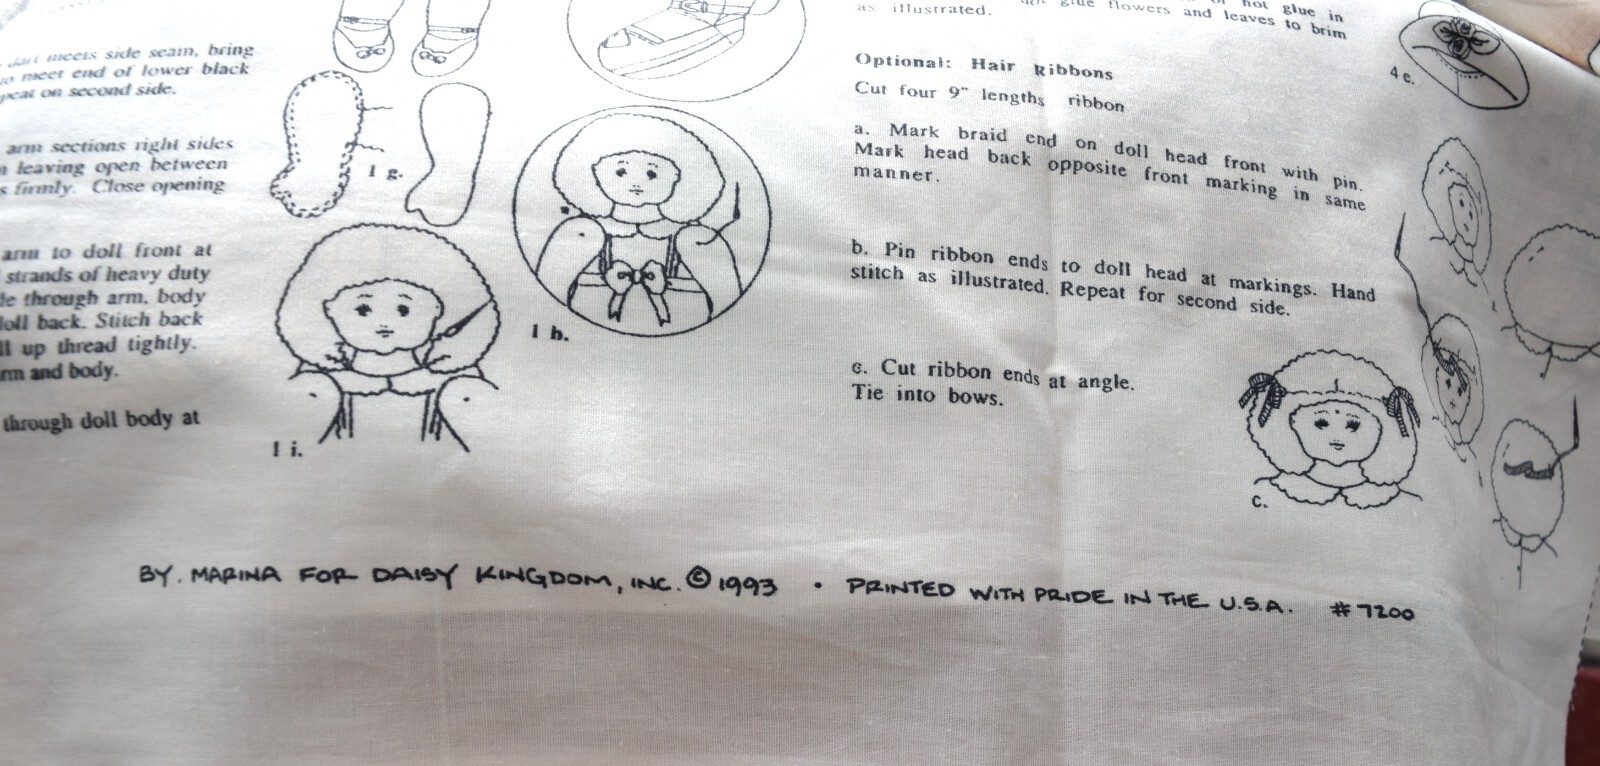 meets side seam, bring
to meet end of lower black
peat on second side.
arm sections right sides
leaving open between
s firmly. Close opening
arm to doll front at
strands of heavy duty
le through arm, body
doll back. Stitch back
ll up thread tightly.
rm and body.
through doll body at
1 g.
1 h.
1 i.
hot glue in
as illustrated.
glue flowers and leaves to brim
4 e.
Optional: Hair Ribbons
Cut four 9" lengths ribbon
a. Mark braid end on doll head front with pin.
Mark head back opposite front marking in same
manner.
b. Pin ribbon ends to doll head at markings. Hand
stitch as illustrated. Repeat for second side.
c. Cut ribbon ends at angle.
Tie into bows.
c.
BY. MARINA FOR DAISY KINGDOM, INC. © 1993 • PRINTED WITH PRIDE IN THE U.S.A. #7200